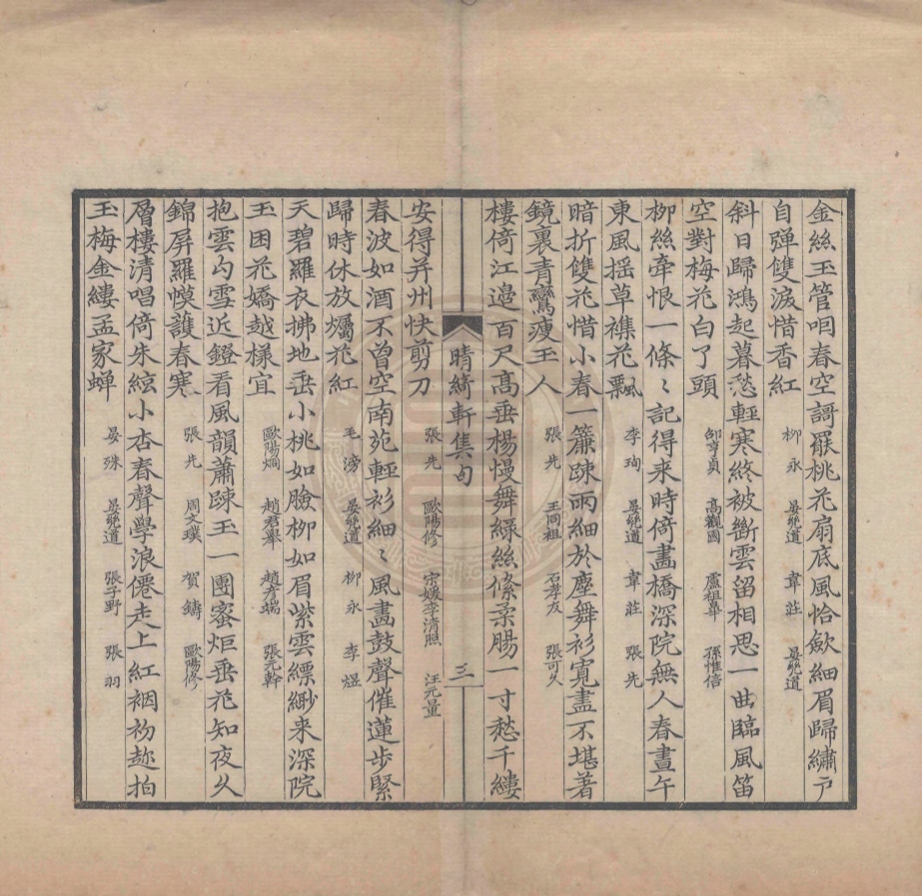 金絲玉管咽春空謌罷桃花扇底風恰歛細眉歸繡户
自彈雙淚惜香紅　柳永　晏㡬道　韋莊　晏㡬道
斜日歸鴻起暮愁輕寒終被斷雲留相思一曲臨風笛
空對梅花白了頭　邵亨貞　高觀國　盧祖臯　孫惟信
柳絲牽恨一條〻記得来時倚畵橋深院無人春晝午
東風揺草襍花飄　李珣　晏㡬道　韋莊　張先
暗折雙花惜小春一簾踈雨細於塵舞衫寛盡不堪著
鏡裏青鸞瘦玉人　張先　王同祖　石孝友　張可久
樓倚江邉百尺高垂楊慢舞綠絲絛柔腸一寸愁千縷
安得并州快剪刀　張先　歐陽修　宗媛李清照　汪元量
晴綺軒集句　三
春波如酒不曾空南苑輕衫細〻風畵鼓聲催蓮步緊
歸時休放燭花紅　毛滂　晏㡬道　柳永　李煜
天碧羅衣拂地垂小桃如臉柳如眉紫雲縹緲来深院
玉困花嬌越様宜　歐陽烱　趙君舉　趙彦端　張元幹
抱雲勾雪近鐙看風韻蕭踈玉一團蜜炬垂花知夜久
錦屏羅幙護春寒　張先　周文璞　賀鑄　歐陽修
層樓清唱倚朱絃小杏春聲學浪僊走上紅裀初趂拍
玉梅金縷孟家蟬　晏殊　晏㡬道　張子野　張羽